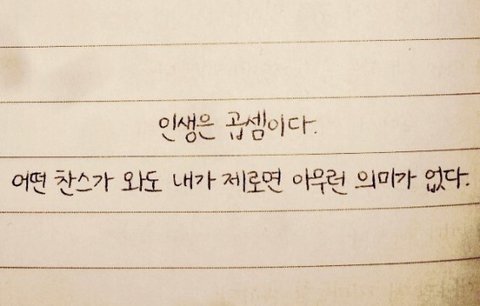 인생은 곱셈이다.
어떤 찬스가 와도 내가 제로면 아무런 의미가 없다.